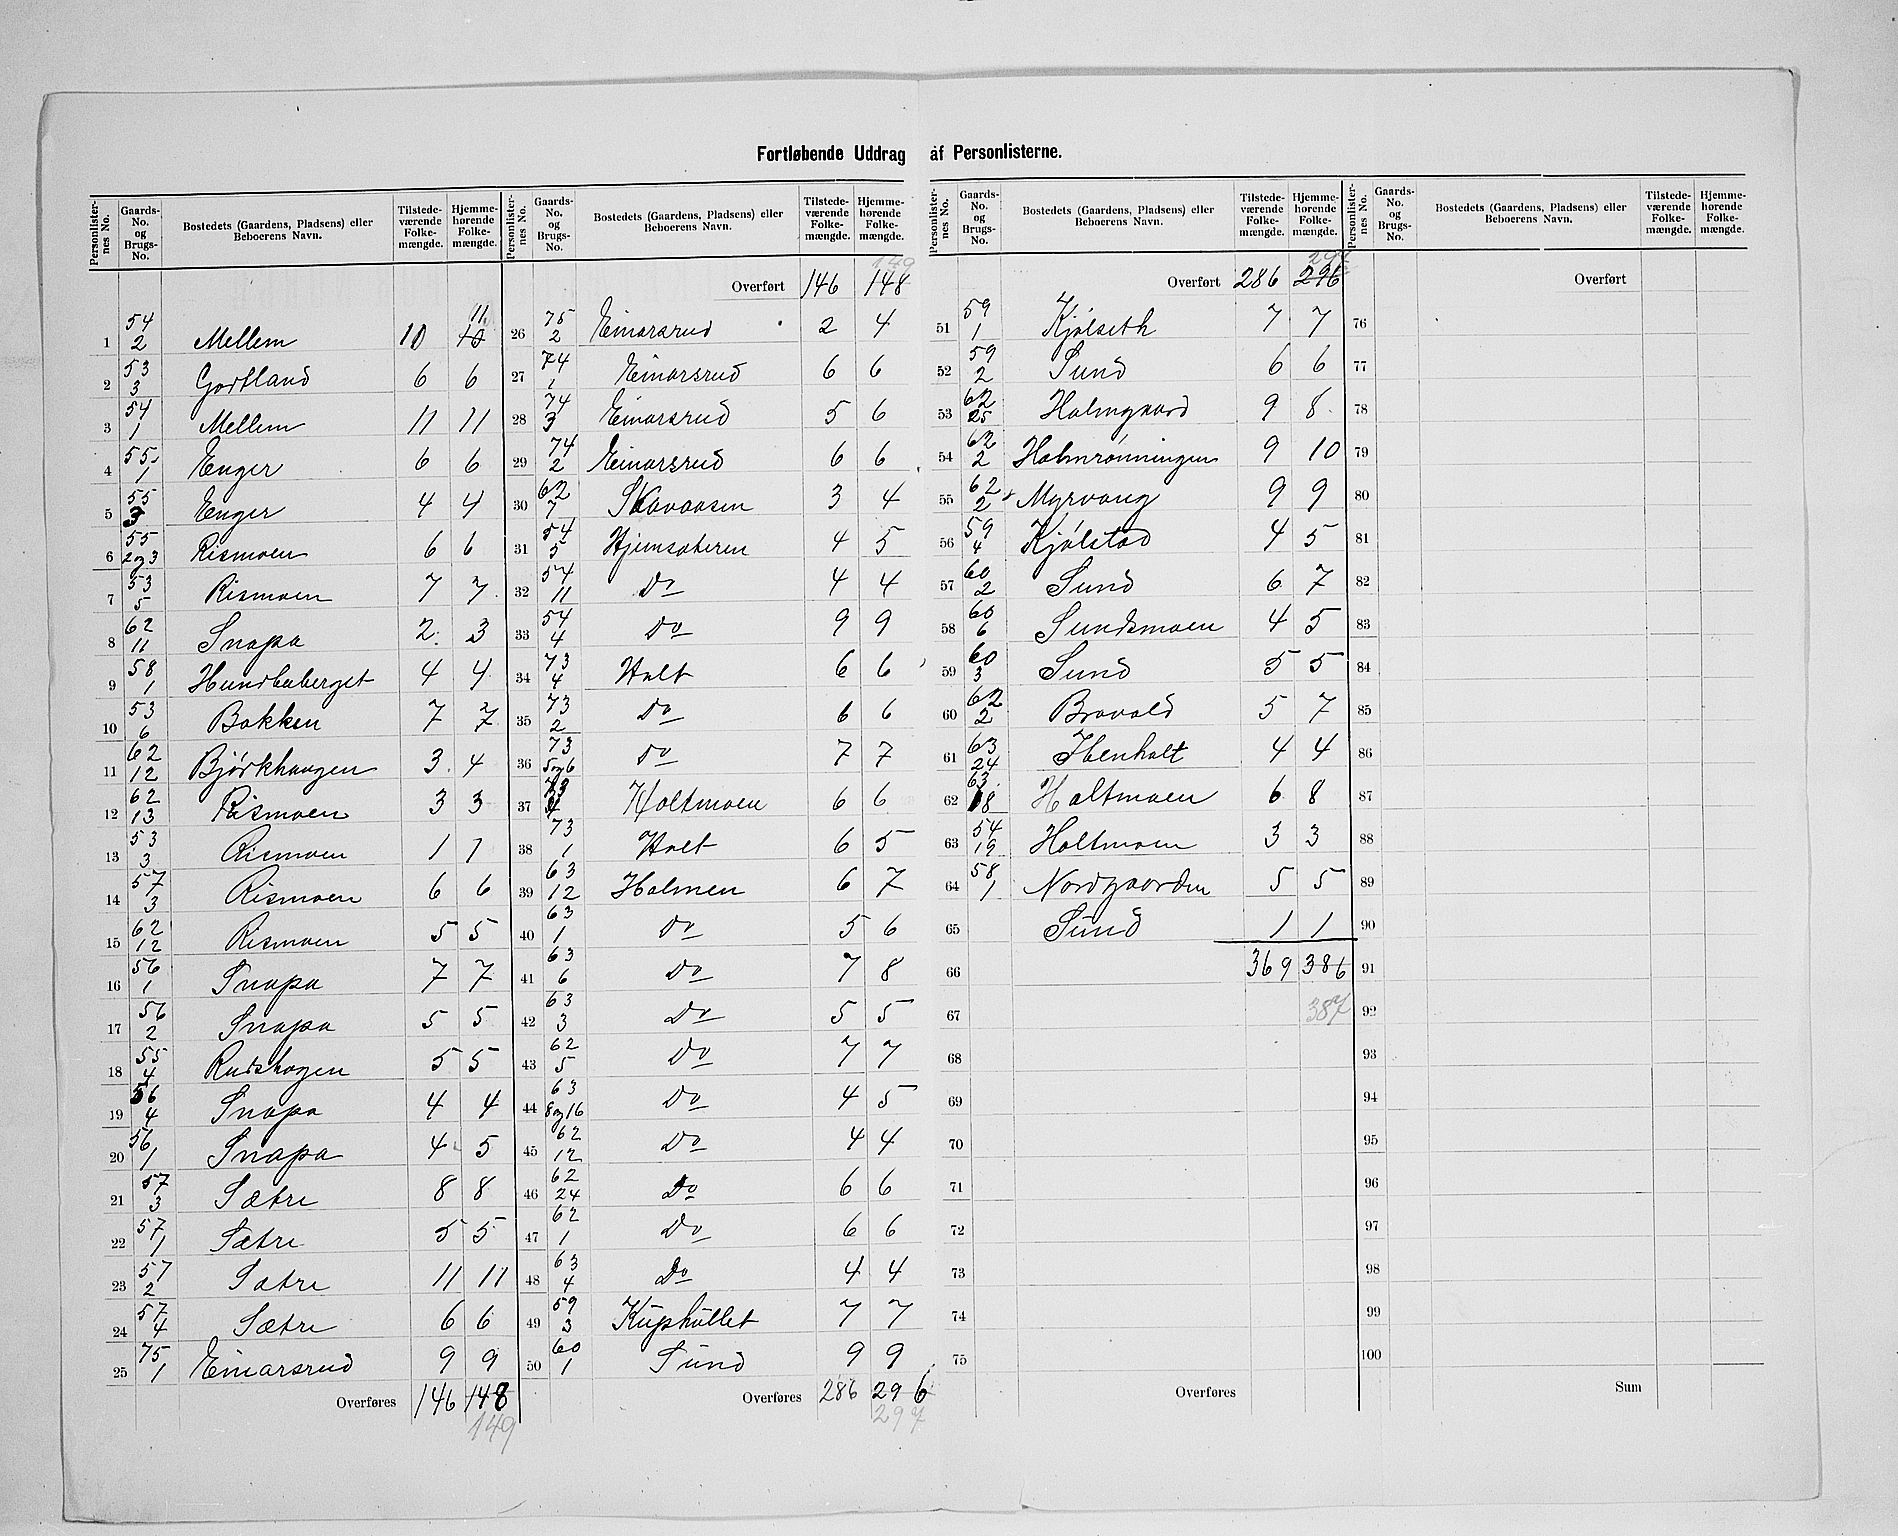 Fortløbende Uddrag af Personlisterne.
Personlister-nes No. | Gaards-No. og Brugs-No. | Bostedets (Gaardens, Pladsens) eller Beboerens Navn. | Tilstede-værende Folke-mængde. | Hjemme-hørende Folke-mængde.
1 | 54/2 | Mellem | 10 | 10 11
2 | 53/3 | Gortland | 6 | 6
3 | 54/1 | Mellem | 11 | 11
4 | 55/1 | Enger | 6 | 6
5 | 55/3 | Enger | 4 | 4
6 | 55/2 og 3 | Rismoen | 6 | 6
7 | 53/5 | Rismoen | 7 | 7
8 | 62/11 | Snapa | 2 | 3
9 | 58/1 | Hundbaberget | 4 | 4
10 | 53/6 | Bakken | 7 | 7
11 | 62/12 | Bjørkhaugen | 3 | 4
12 | 62/13 | Rismoen | 3 | 3
13 | 53/3 | Rismoen | 1 | 1
14 | 57/3 | Rismoen | 6 | 6
15 | 62/12 | Rismoen | 5 | 5
16 | 56/1 | Snapa | 7 | 7
17 | 56/2 | Snapa | 5 | 5
18 | 55/4 | Rudshagen | 5 | 5
19 | 56/4 | Snapa | 4 | 4
20 | 56/1 | Snapa | 4 | 5
21 | 57/3 | Sætre | 8 | 8
22 | 57/1 | Sætre | 5 | 5
23 | 57/2 | Sætre | 11 | 11
24 | 57/4 | Sætre | 6 | 6
25 | 75/1 | Einarsrud | 9 | 9
Overføres | 146 | 148
149
Personlister-nes No. | Gaards-No. og Brugs-No. | Bostedets (Gaardens, Pladsens) eller Beboerens Navn. | Tilstede-værende Folke-mængde. | Hjemme-hørende Folke-mængde.
149
Overført | 146 | 148
26 | 75/2 | Einarsrud | 2 | 4
27 | 74/1 | Einarsrud | 6 | 6
28 | 74/3 | Einarsrud | 5 | 6
29 | 74/2 | Einarsrud | 6 | 6
30 | 62/7 | Skavaasen | 3 | 4
31 | 54/5 | Hjemsæteren | 4 | 5
32 | 54/11 | Do | 4 | 4
33 | 54/4 | Do | 9 | 9
34 | 73/4 | Holt | 6 | 6
35 | 73/2 | Do | 6 | 6
36 | 73/5 og 6 | Do | 7 | 7
37 | 73 | Holtmoen | 6 | 6
38 | 73/1 | Holt | 6 | 5
39 | 63/12 | Holmen | 6 | 7
40 | 63/1 | Do | 5 | 6
41 | 63/6 | Do | 7 | 8
42 | 63/3 | Do | 5 | 5
43 | 62/5 | Do | 7 | 7
44 | 63/8 og 16 | Do | 4 | 5
45 | 62/12 | Do | 4 | 4
46 | 62/24 | Do | 6 | 6
47 | 62/1 | Do | 6 | 6
48 | 63/4 | Do | 4 | 4
49 | 59/3 | Kuphullet | 7 | 7
50 | 60/1 | Sund | 9 | 9
Overføres | 286 | 296
297
Personlister-nes No. | Gaards-No. og Brugs-No. | Bostedets (Gaardens, Pladsens) eller Beboerens Navn. | Tilstede-værende Folke-mængde. | Hjemme-hørende Folke-mængde.
297
Overført | 286 | 296
51 | 59/1 | Kjølseth | 7 | 7
52 | 59/2 | Sund | 6 | 6
53 | 62/25 | Holmgaard | 9 | 8
54 | 62/2 | Holmrønningen | 9 | 10
55 | 62/2 | Myrvang | 9 | 9
56 | 59/4 | Kjølstad | 4 | 5
57 | 60/2 | Sund | 6 | 7
58 | 60/6 | Sundsmoen | 4 | 5
59 | 60/3 | Sund | 5 | 5
60 | 62/2 | Bravold | 5 | 7
61 | 63/24 | Ibenholt | 4 | 4
62 | 63/18 | Holtmoen | 6 | 8
63 | 54/19 | Holtmoen | 3 | 3
64 | 58/1 | Nordgaarden | 5 | 5
65 | Sund | 1 | 1
66 | 369 | 386
67 | 387
68
69
70
71
72
73
74
75
Overføres
Personlister-nes No. | Gaards-No. og Brugs-No. | Bostedets (Gaardens, Pladsens) eller Beboerens Navn. | Tilstede-værende Folke-mængde. | Hjemme-hørende Folke-mængde.
Overført
76
77
78
79
80
81
82
83
84
85
86
87
88
89
90
91
92
93
94
95
96
97
98
99
100
Sum